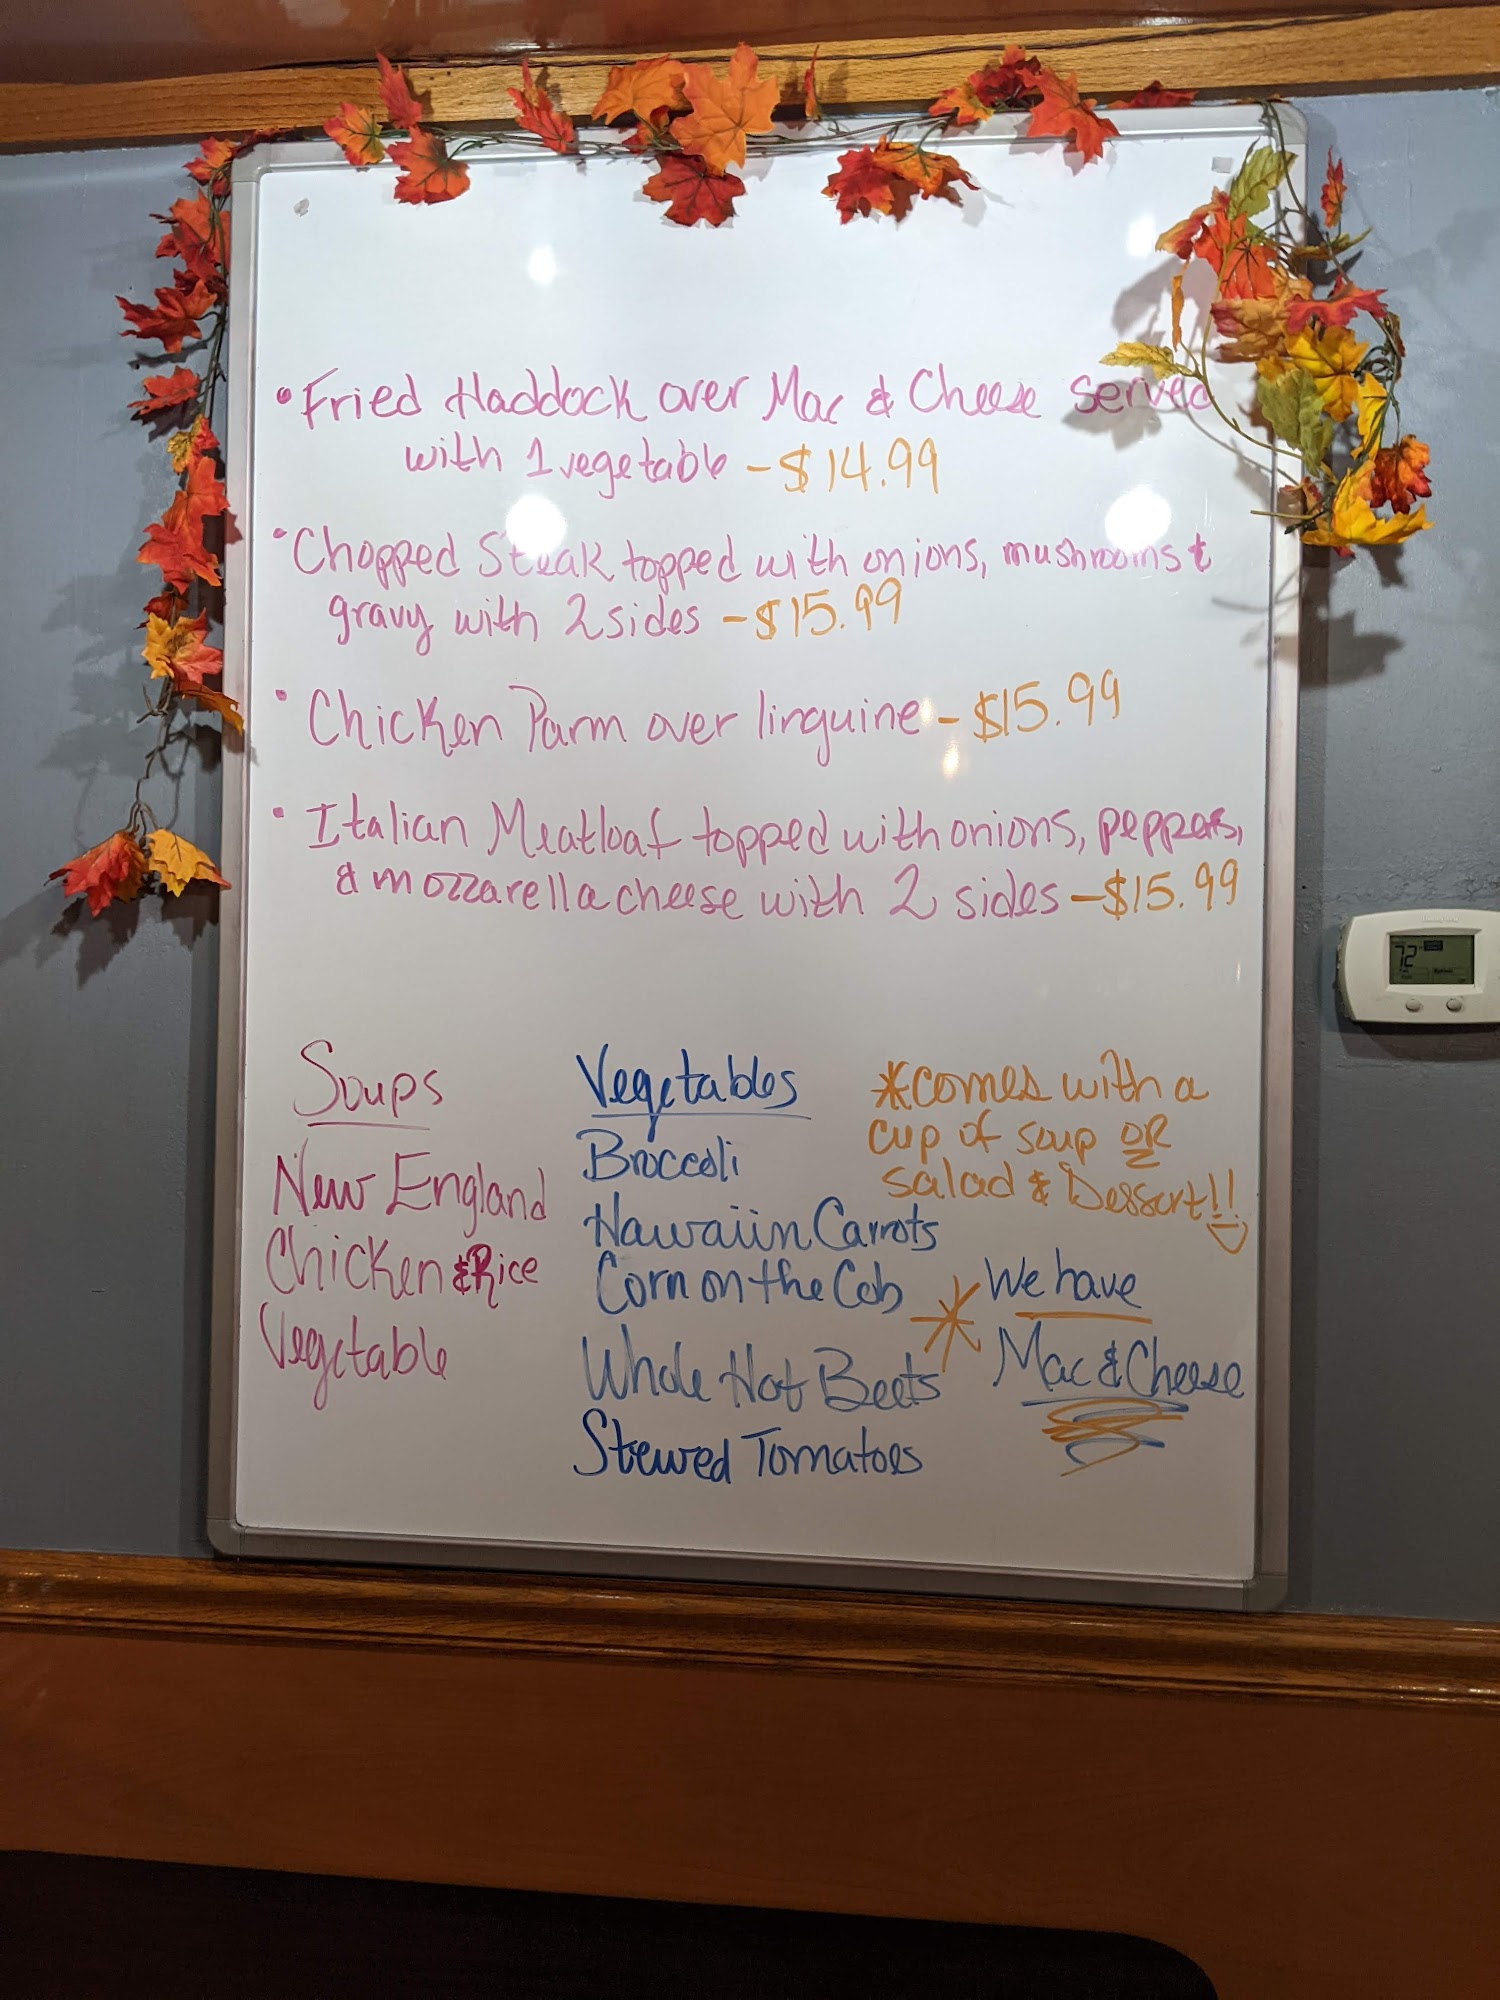 • Fried Haddock over Mac & Cheese Served
with 1 vegetable - $14.99
• Chopped Steak topped with onions, mushrooms &
gravy with 2 sides - $15.99
• Chicken Parm over linguine - $15.99
• Italian Meatloaf topped with onions, peppers,
& mozzarella cheese with 2 sides - $15.99
Soups
New England
Chicken & Rice
Vegetable
Vegetables
Broccoli
Hawaiin Carrots
Corn on the Cob
Whole Hot Beets
Stewed Tomatoes
*comes with a
cup of soup OR
salad & Dessert!!
* We have
Mac & Cheese
72